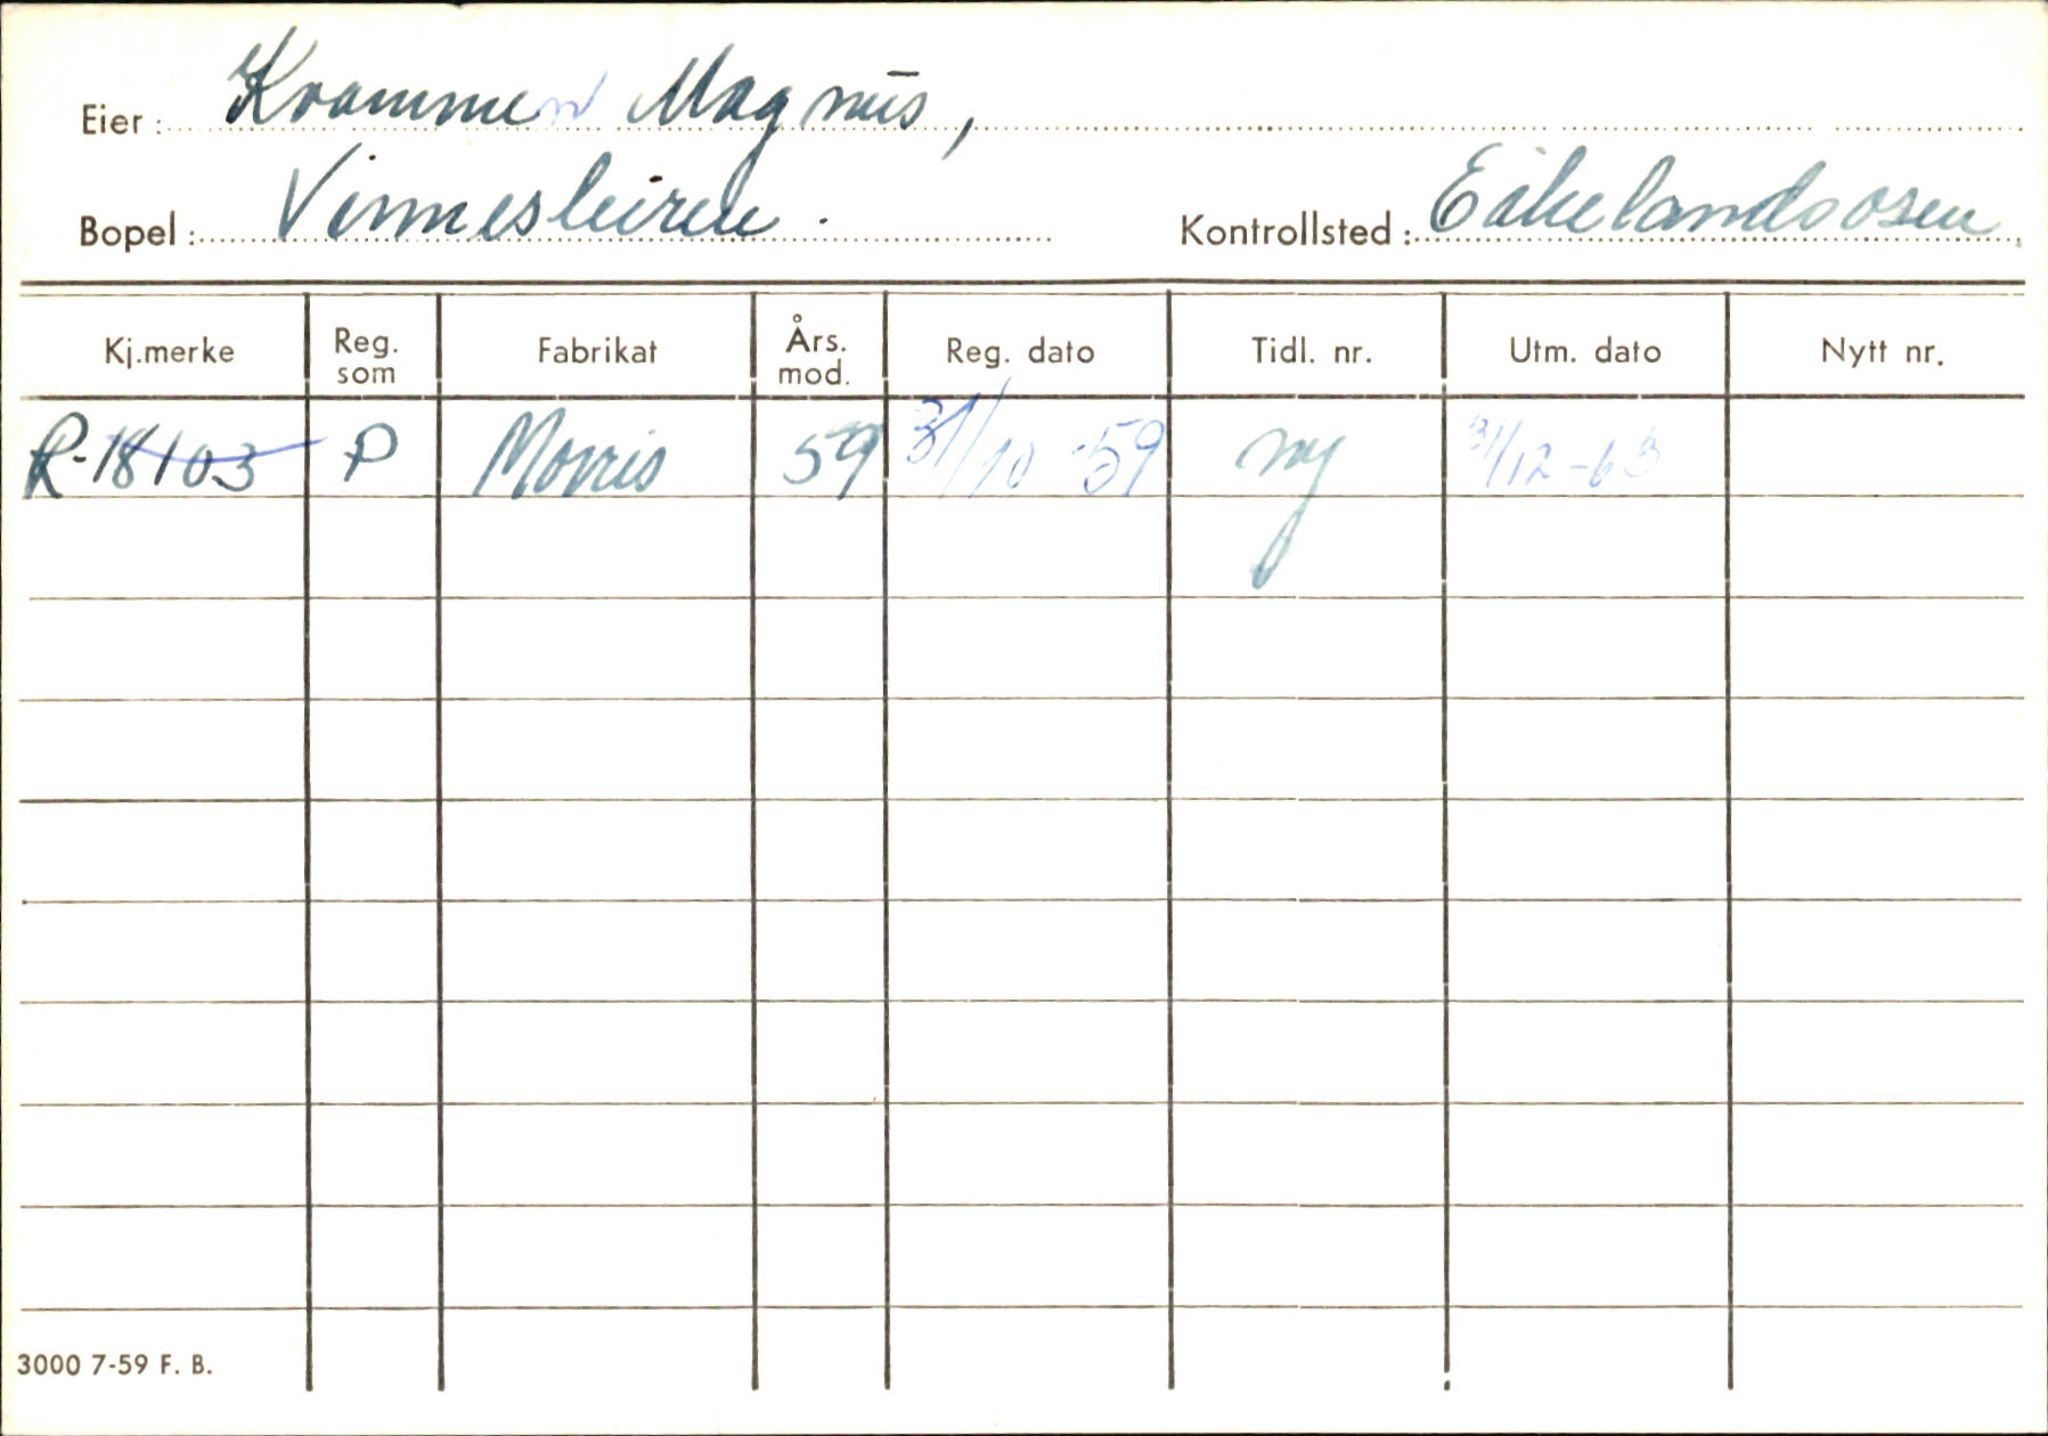 Eier: Kvammen Magnus,
Bopel: Vinnesleiren. Kontrollsted: Eikelandsosen
Kj.merke Reg. som Fabrikat Års. mod. Reg. dato Tidl. nr. Utm. dato Nytt nr.
R-18103 P Morris 59 31/10-59 ny 31/12-63
3000 7-59 F. B.